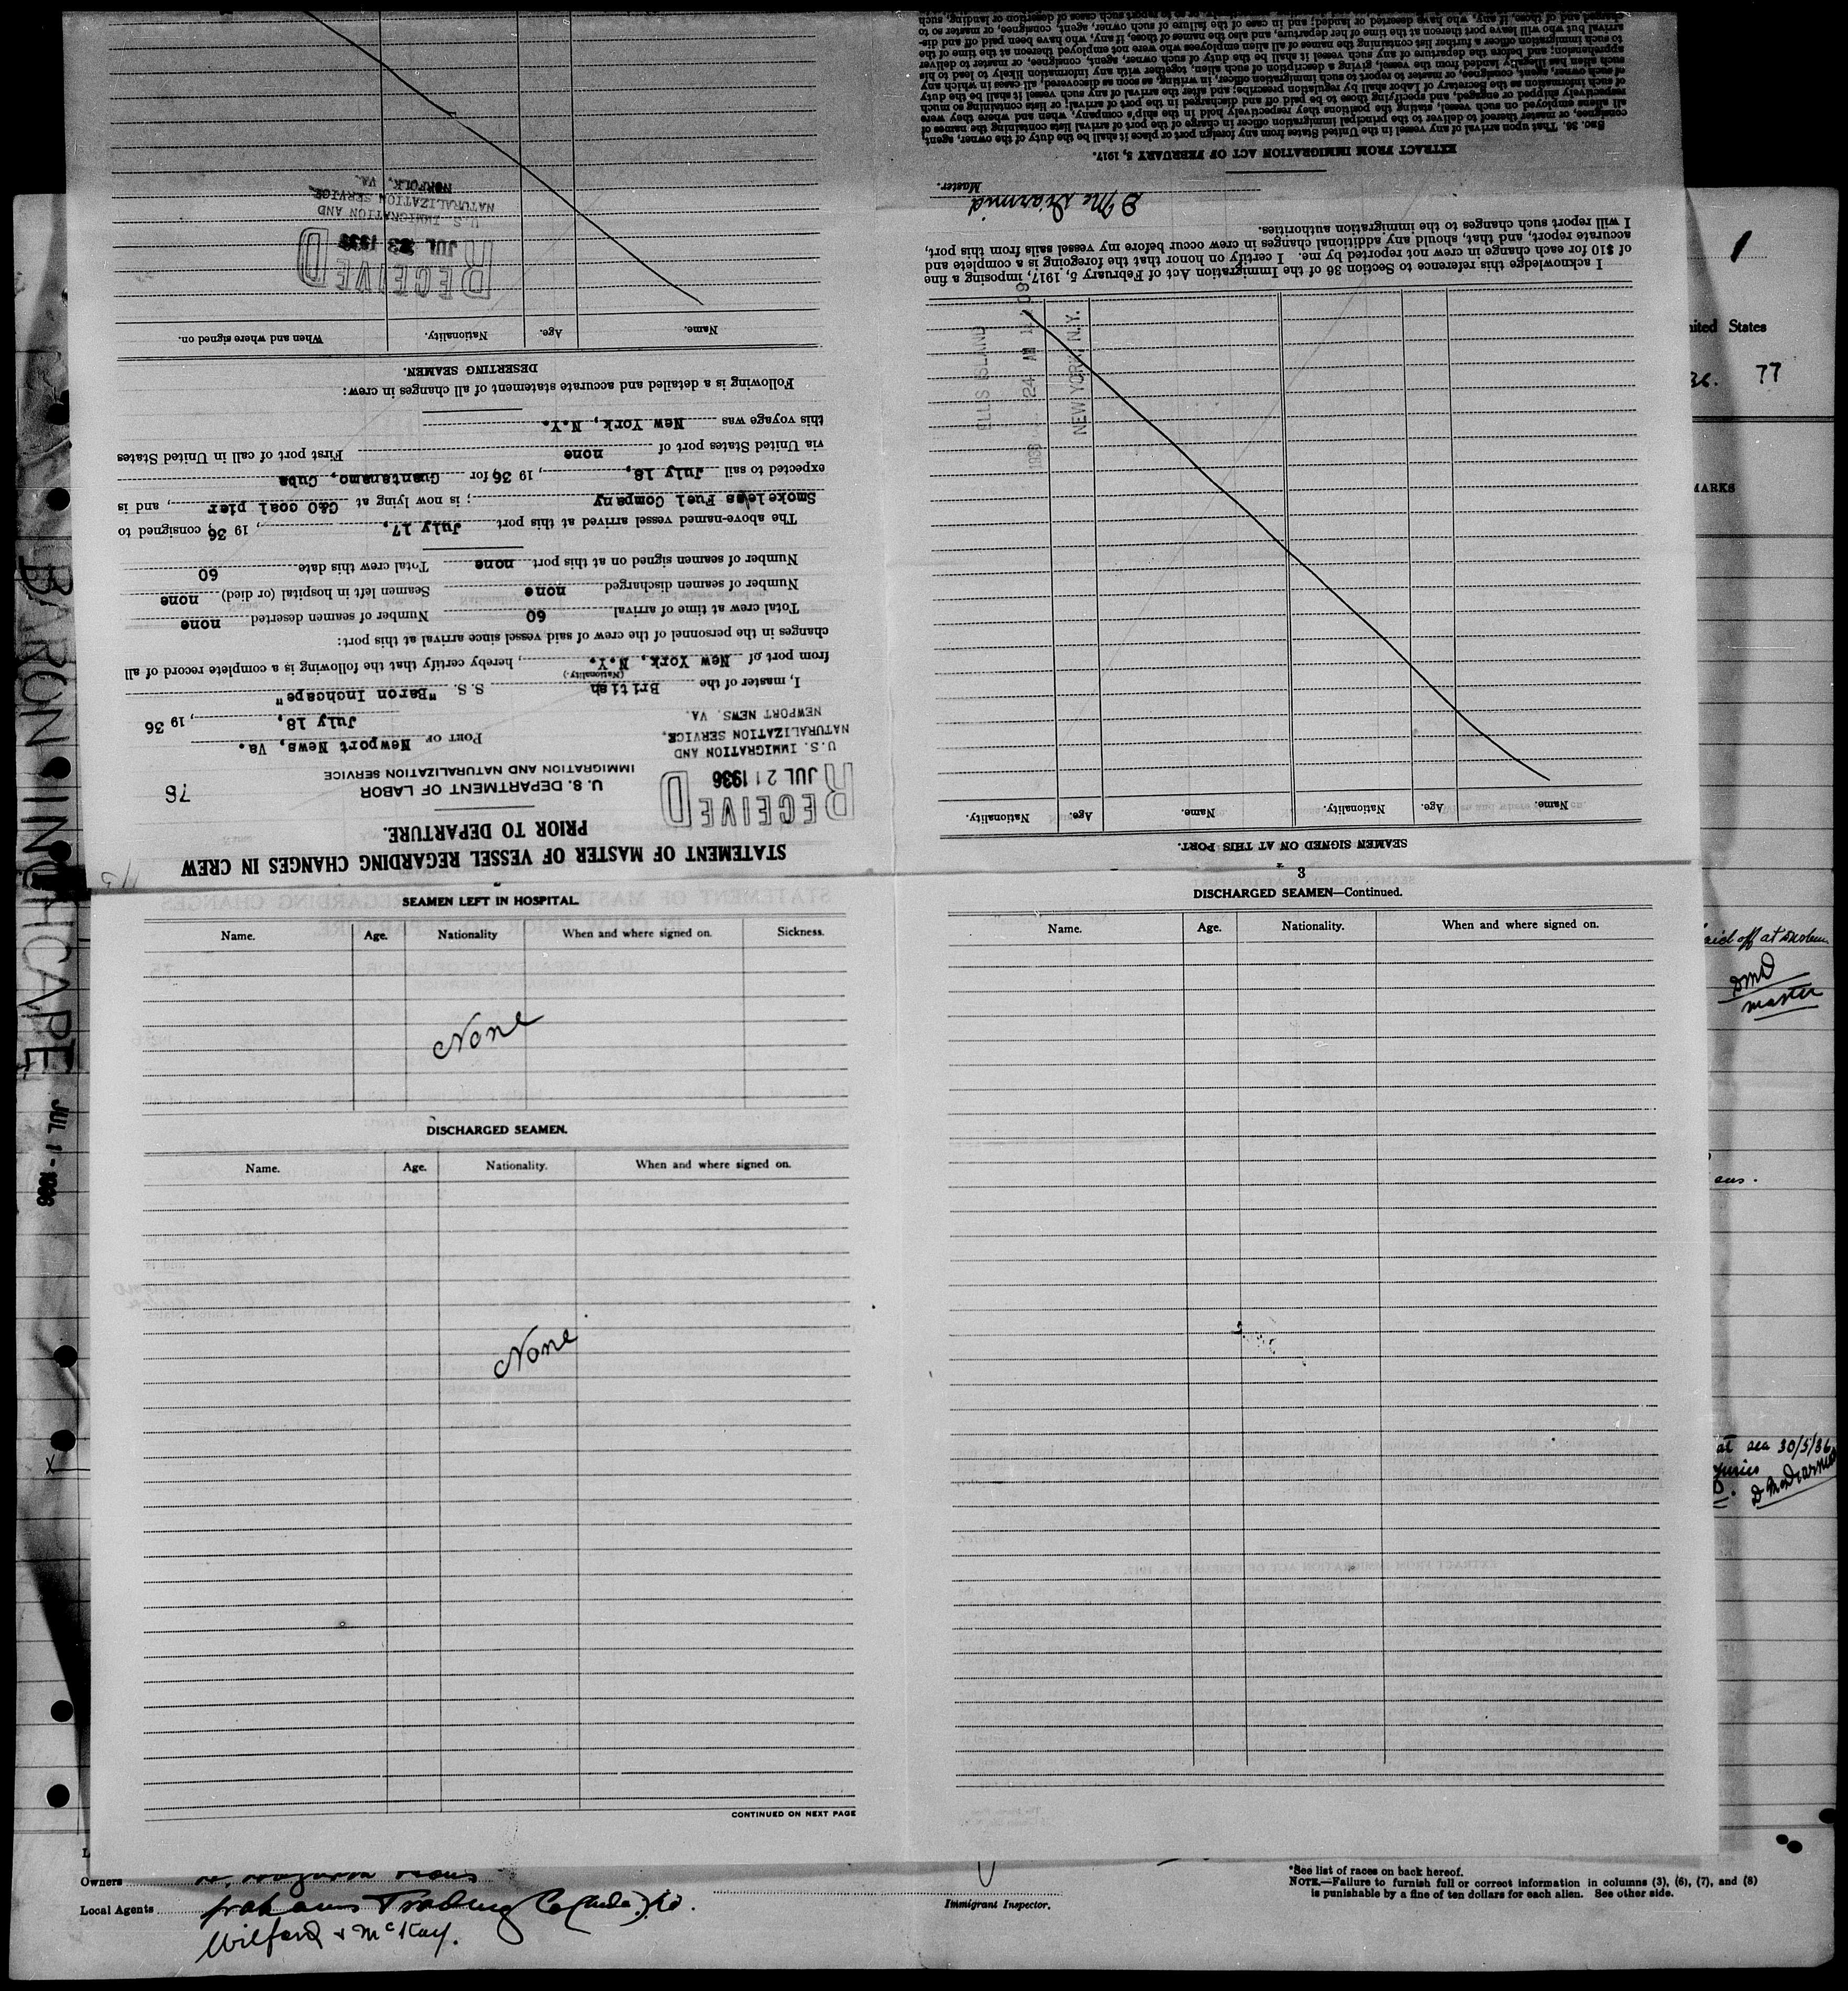 STATEMENT OF MASTER OF VESSEL REGARDING CHANGES IN CREW
PRIOR TO DEPARTURE.
RECEIVED
JUL 21 1936
U.S. IMMIGRATION AND
NATURALIZATION SERVICE,
NEWPORT NEWS, VA.
U. S. DEPARTMENT OF LABOR
IMMIGRATION AND NATURALIZATION SERVICE
76
PORT OF Newport News, Va.
July 18, 19 36
I, master of the British S. S. "Baron Inchcape"
(Nationality.)
from port of New York, N.Y., hereby certify that the following is a complete record of all
changes in the personnel of the crew of said vessel since arrival at this port:
Total crew at time of arrival 60 Number of seamen deserted none
Number of seamen discharged none Seamen left in hospital (or died) none
Number of seamen signed on at this port none Total crew this date 60
The above-named vessel arrived at this port July 17, 19 36, consigned to
Smokeless Fuel Company; is now lying at C&O coal pier, and is
expected to sail July 18, 19 36 for Guantanamo, Cuba
via United States port of none First port of call in United States
this voyage was New York, N.Y.
Following is a detailed and accurate statement of all changes in crew:
DESERTING SEAMEN.
Name. Age. Nationality. When and where signed on.
RECEIVED
JUL 23 1936
U.S. IMMIGRATION AND
NATURALIZATION SERVICE,
NORFOLK, VA.
SEAMEN LEFT IN HOSPITAL.
Name. Age. Nationality When and where signed on. Sickness.
None
DISCHARGED SEAMEN.
Name. Age. Nationality. When and where signed on.
None
CONTINUED ON NEXT PAGE
3
DISCHARGED SEAMEN—Continued.
Name. Age. Nationality. When and where signed on.
SEAMEN SIGNED ON AT THIS PORT.
Name. Age. Nationality. Name. Age. Nationality.
ELLIS ISLAND
1936 24 AM
NEW YORK N.Y.
I acknowledge this reference to Section 36 of the Immigration Act of February 5, 1917, imposing a fine
of $10 for each change in crew not reported by me. I certify on honor that the foregoing is a complete and
accurate report, and that, should any additional changes in crew occur before my vessel sails from this port,
I will report such changes to the immigration authorities.
D McDiarmid
Master.
EXTRACT FROM IMMIGRATION ACT OF FEBRUARY 5, 1917.
SEC. 36. That upon arrival of any vessel in the United States from any foreign port or place it shall be the duty of the owner, agent,
consignee, or master thereof to deliver to the principal immigration officer in charge of the port of arrival lists containing the names of
all aliens employed on such vessel, stating the positions they respectively hold in the ship's company, when and where they were
respectively shipped or engaged, and specifying those to be paid off and discharged in the port of arrival; or lists containing so much
of such information as the Secretary of Labor shall by regulation prescribe; and after the arrival of any such vessel it shall be the duty
of such owner, agent, consignee, or master to report to such immigration officer, in writing, as soon as discovered, all cases in which any
such alien has illegally landed from the vessel, giving a description of such alien, together with any information likely to lead to his
apprehension; and before the departure of any such vessel it shall be the duty of such owner, agent, consignee, or master to deliver
to such immigration officer a further list containing the names of all alien employees who were not employed thereon at the time of the
arrival but who will leave port thereon at the time of her departure, and also the names of those, if any, who have been paid off and dis-
charged and of those, if any, who have deserted or landed; and in case of the failure of such owner, agent, consignee, or master so to
BARON INCHCAPE
JUL 1 - 1936
1
United States
77
MARKS
paid off at
DMD
master
at sea 30/5/36
D McDiarmid
Owners
Local Agents Trading Co
Wilford & McKay.
Immigrant Inspector.
*See list of races on back hereof.
NOTE.—Failure to furnish full or correct information in columns (3), (6), (7), and (8)
is punishable by a fine of ten dollars for each alien. See other side.